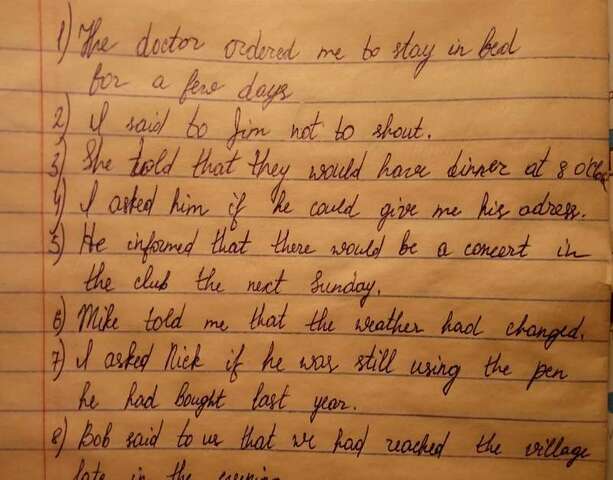 1) The doctor ordered me to stay in bed
for a few days
2) I said to Jim not to shout.
3) She told that they would have dinner at 8 o'clock
4) I asked him if he could give me his adress.
5) He informed that there would be a concert in
the club the next Sunday.
6) Mike told me that the weather had changed.
7) I asked Nick if he was still using the pen
he had bought last year.
8) Bob said to us that we had reached the village
late in the evening